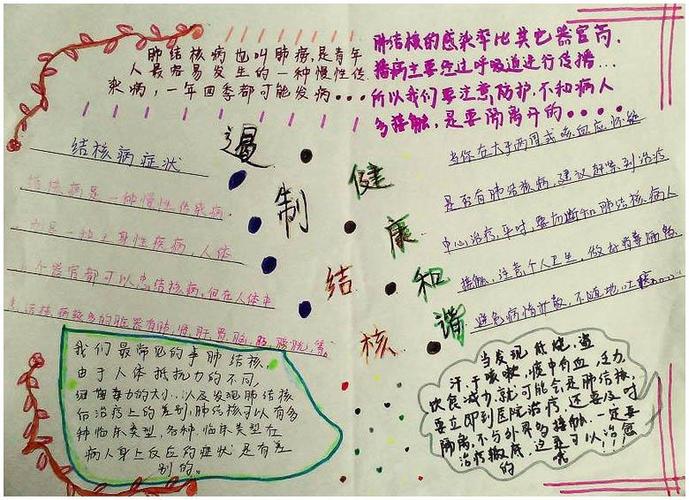 肺结核病也叫肺痨,是青年
人最容易发生的一种慢性传
染病,一年四季都可能发病...
肺结核的感染率比其它器官高,
播病主要经过呼吸道进行传播...
所以我们要注意防护,不和病人
多接触,是要隔离开的....
遏制结核
健康和谐
结核病症状
结核病是一种慢性传染病.
也是一种全身性疾病,人体
个器官都可以患结核病,但在人体中
结核病较多的脏器有肺,肾,肝,胃,脑,肠,膀胱,等.
当你在大于两周或
是否有肺结核病,建议赶紧到治疗
中心治疗,平时,要间断和肺结核病人
接触,注意个人卫生,做好消毒
避免病情扩散,不随地吐痰......
我们最常见的事肺结核
由于人体抵抗力的不同,
细菌毒力的大小,以及发现肺结核
后治疗上的差别,肺结核可以有多
种临床类型,各种临床类型在
病人身上反应的症状是有差
别的.
当发现低烧,盗
汗,干咳嗽,痰中有血,乏力
饮食减少,就可能会是肺结核,
要立即到医院治疗,还要及时
隔离,不与外界多接触,一定要
治疗彻底,这是可以治愈
的